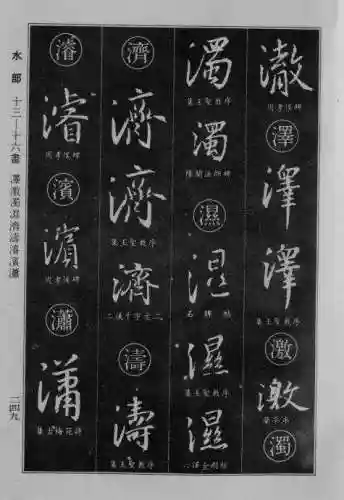 水部 十三—十六畫 澤激濁濕濟濤濬濱瀟
二四九
澈
周孝侯碑
澤
澤
澤
集王聖教序
激
激
濁
濁
集王聖教序
濁
隆闡法師碑
濕
濕
濕
集王聖教序
濕
濟
濟
濟
集王聖教序
濟
濤
濤
集王聖教序
濬
濬
周孝侯碑
濱
濱
周孝侯碑
瀟
瀟